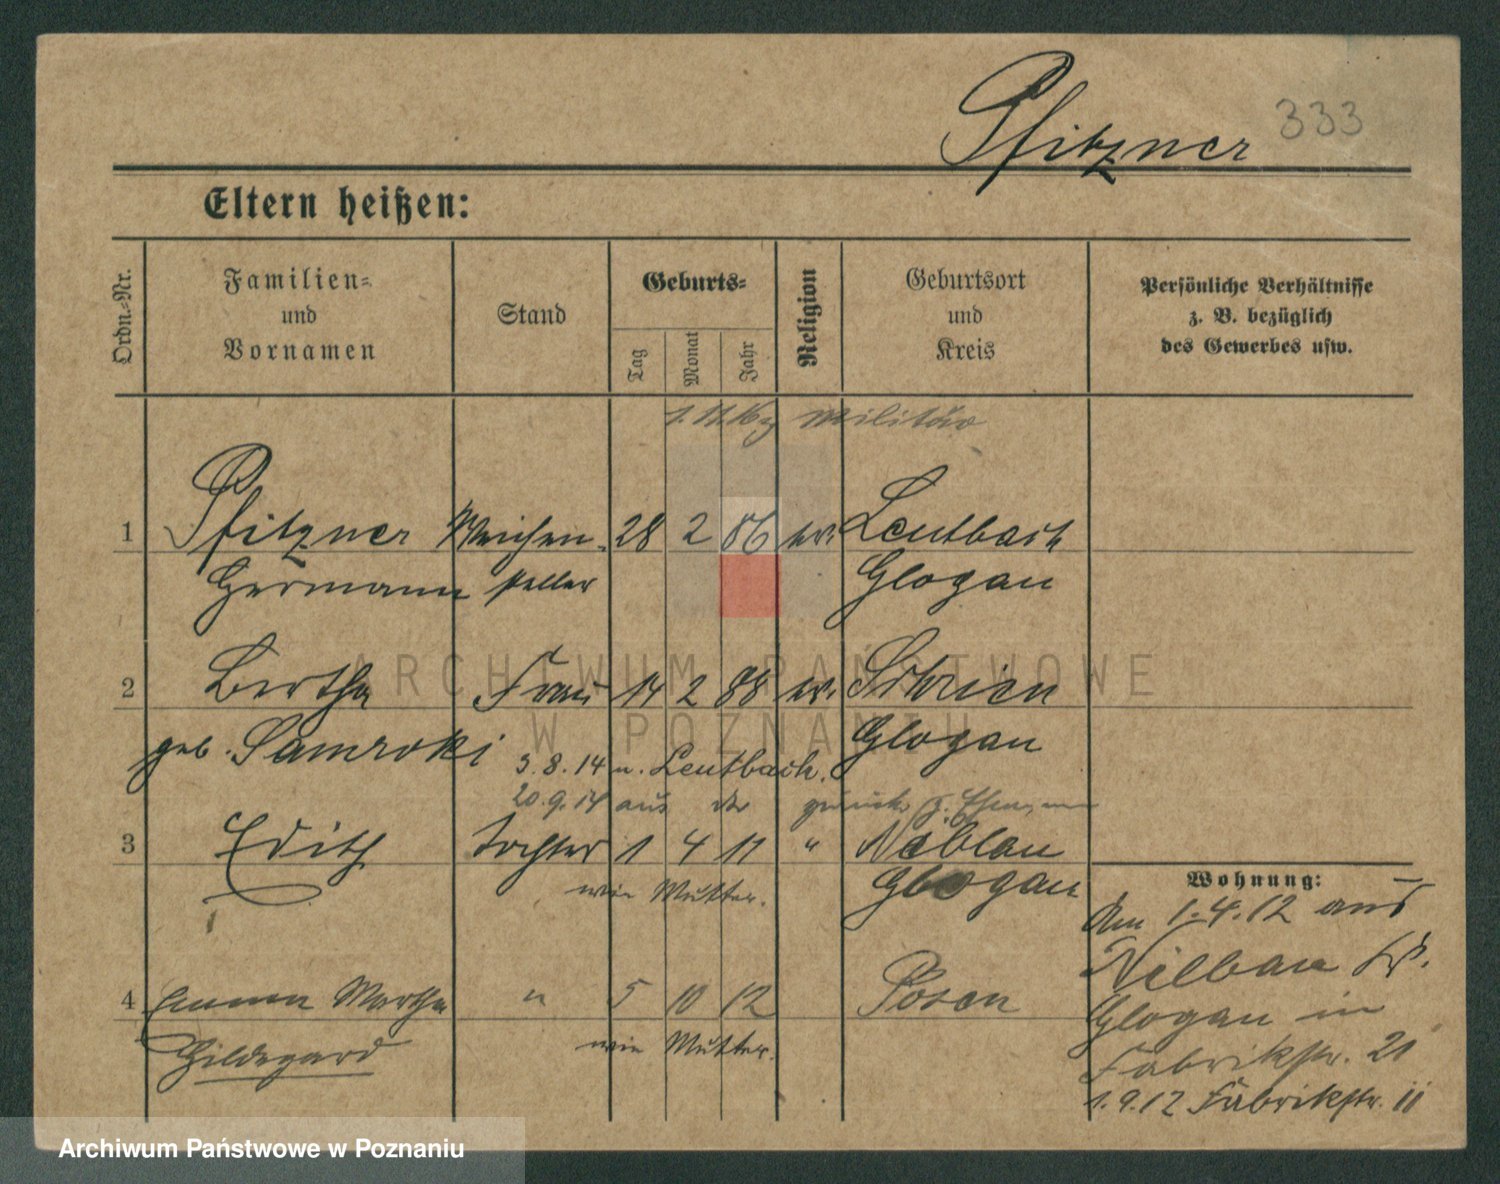 Pfitzner 333
Eltern heißen:
Ordn.-Nr.
Familien-
und
Vornamen
Stand
Geburts-
Tag
Monat
Jahr
Religion
Geburtsort
und
Kreis
Persönliche Verhältnisse
z. B. bezüglich
des Gewerbes usw.
Militär
1 Pfitzner Weichen- 28 2 86 ev. Leutbach
Germann steller Glogau
2 Bertha Frau 14 2 88 ev. Glogau
geb. Samroki
3.8.14 n. Leutbach.
20.9.14 aus zurück
3 Edith Tochter 1 4 11 " Nilbau
wie Mutter. Glogau
4 Emma Martha " 5 10 12 Posen
Hildegard wie Mutter.
Wohnung:
Am 1.4.12 aus
Nilbau Kr.
Glogau in
Fabrikstr. 21
1.9.12 Fabrikstr. 11
ARCHIWUM PAŃSTWOWE
W POZNANIU
Archiwum Państwowe w Poznaniu